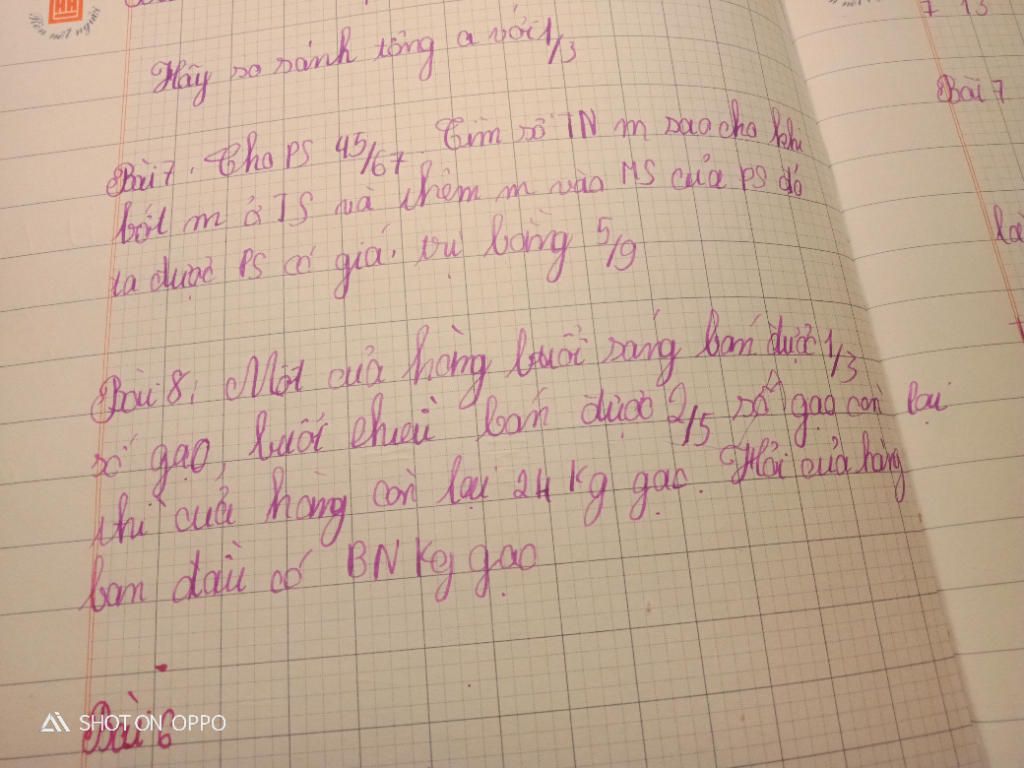 HH
Nên một người
7 13
Hãy so sánh tổng a với 1/3
Bài 7
Bài 7. Cho PS 45/67. Tìm số TN m sao cho khi
bớt m ở TS và thêm m vào MS của PS đó
ta được PS có giá trị bằng 5/9
Bài 8: Một cửa hàng buổi sáng bán được 1/3
số gạo, buổi chiều bán được 2/5 số gạo còn lại
thì cửa hàng còn lại 24 kg gạo. Hỏi cửa hàng
ban đầu có BN kg gạo
Bài 6
SHOT ON OPPO